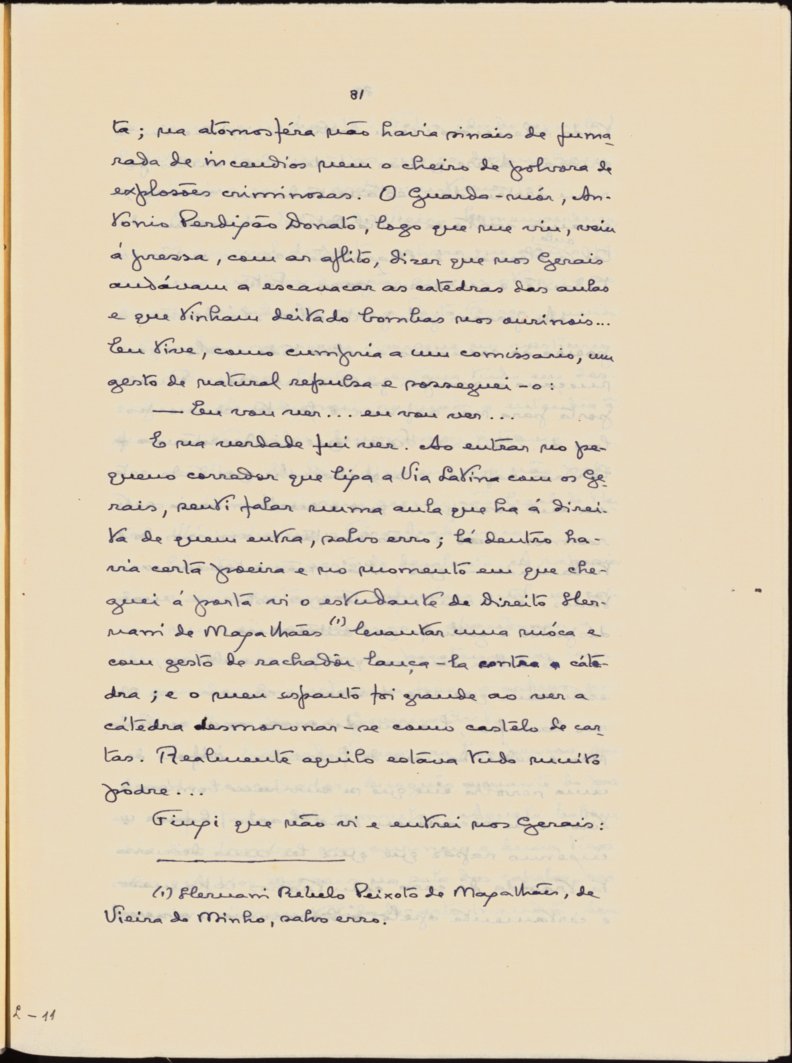 81
ta; na atmosféra não havia sinais de fuma-
rada de incendios nem o cheiro de polvora de
explosões criminosas. O Guarda-mór, An-
tonio Perdigão Donato, logo que me viu, veiu
á pressa, com ar aflito, dizer que nos Gerais
andávam a escavacar as catedras das aulas
e que tinham deitado bombas nos ourinois...
Eu tive, como cumpria a um comissario, um
gesto de natural repulsa e sosseguei-o:
— Eu vou ver... eu vou ver...
E na verdade fui ver. Ao entrar no pe-
queno corredor que liga a Via Latina com os Ge-
rais, senti falar numa aula que ha á direi-
ta de quem entra, salvo erro; lá dentro ha-
via certa poeira e no momento em que che-
guei á porta vi o estudante de Direito Her-
nani de Magalhães (1) levantar uma móca e
com gesto de rachadôr lança-la contra a cáte-
dra; e o meu espanto foi grande ao ver a
cátedra desmoronar-se como castelo de car-
tas. Realmente aquilo estava tudo muito
pôdre...
Fingi que não vi e entrei nos Gerais:
(1) Hernani Rebelo Peixoto de Magalhães, de
Vieira do Minho, salvo erro.
2-11